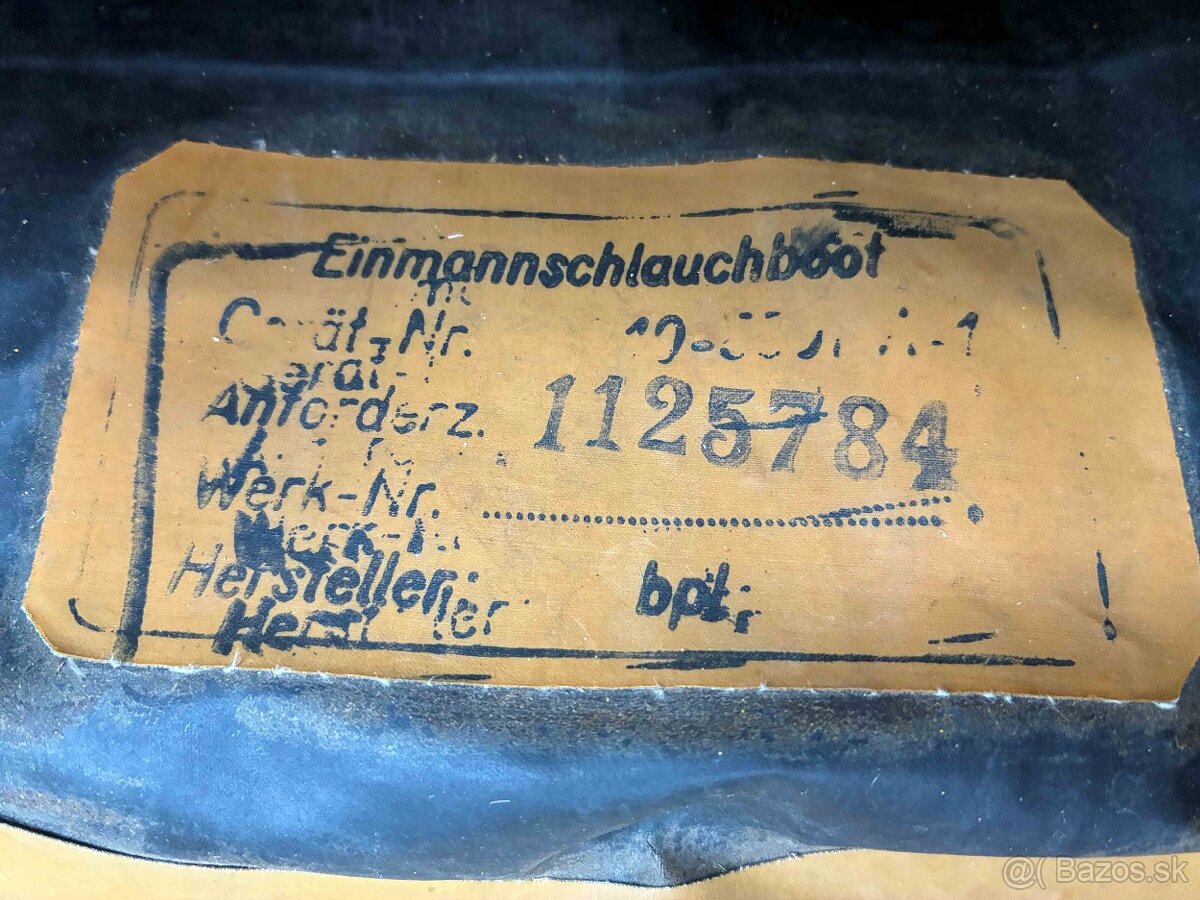 Einmannschlauchboot
Gerät-Nr.
Anforderz.
1125784
Werk-Nr.
Werk-
Hersteller:
bpt
@( Bazos.sk